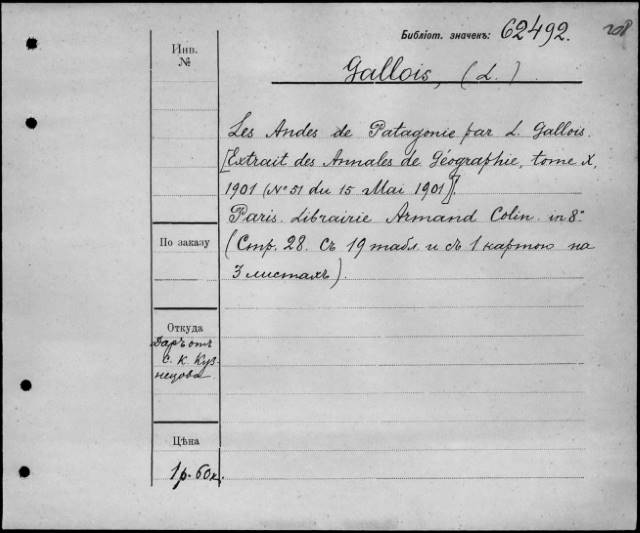 Библіот. значекъ: 62492.
208
Инв.
№
Gallois, (L.)
Les Andes de Patagonie par L. Gallois.
[Extrait des Annales de Géographie, tome X,
1901 (N° 51 du 15 Mai 1901)].
Paris. Librairie Armand Colin. in 8°
(Стр. 28. Съ 19 табл. и съ 1 картою на
3 листахъ).
По заказу
Откуда
Даръ отъ
С. К. Куз
нецова
Цѣна
1 р. 60 к.